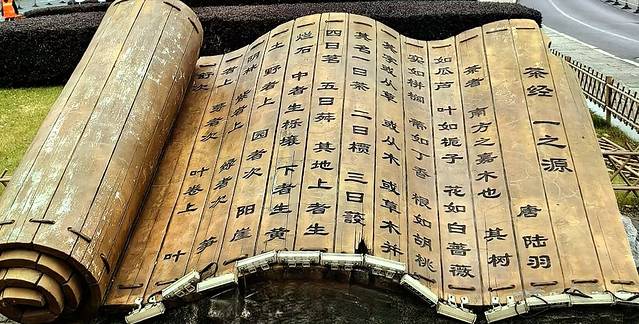 茶经 一之源
唐 陆羽
茶者 南方之嘉木也 其树
如瓜芦 叶如栀子 花如白蔷薇
实如栟榈 蒂如丁香 根如胡桃
其字或从草 或从木 或草木并
其名一曰茶 二曰槚 三曰蔎
四曰茗 五曰荈 其地上者生
烂石 中者生栎壤 下者生黄
土 野者上 园者次 阳崖
阴林 紫者上 绿者次 笋
者上 芽者次 叶卷上 叶
舒次